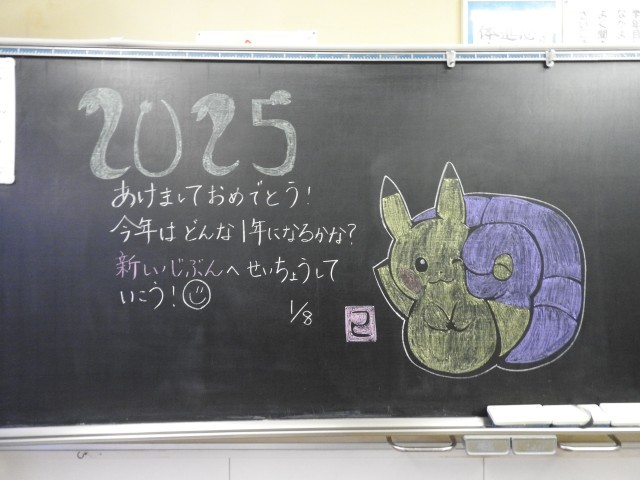 2025
あけましておめでとう!
今年はどんな1年になるかな?
新しいじぶんへせいちょうして
いこう!
1/8
巳